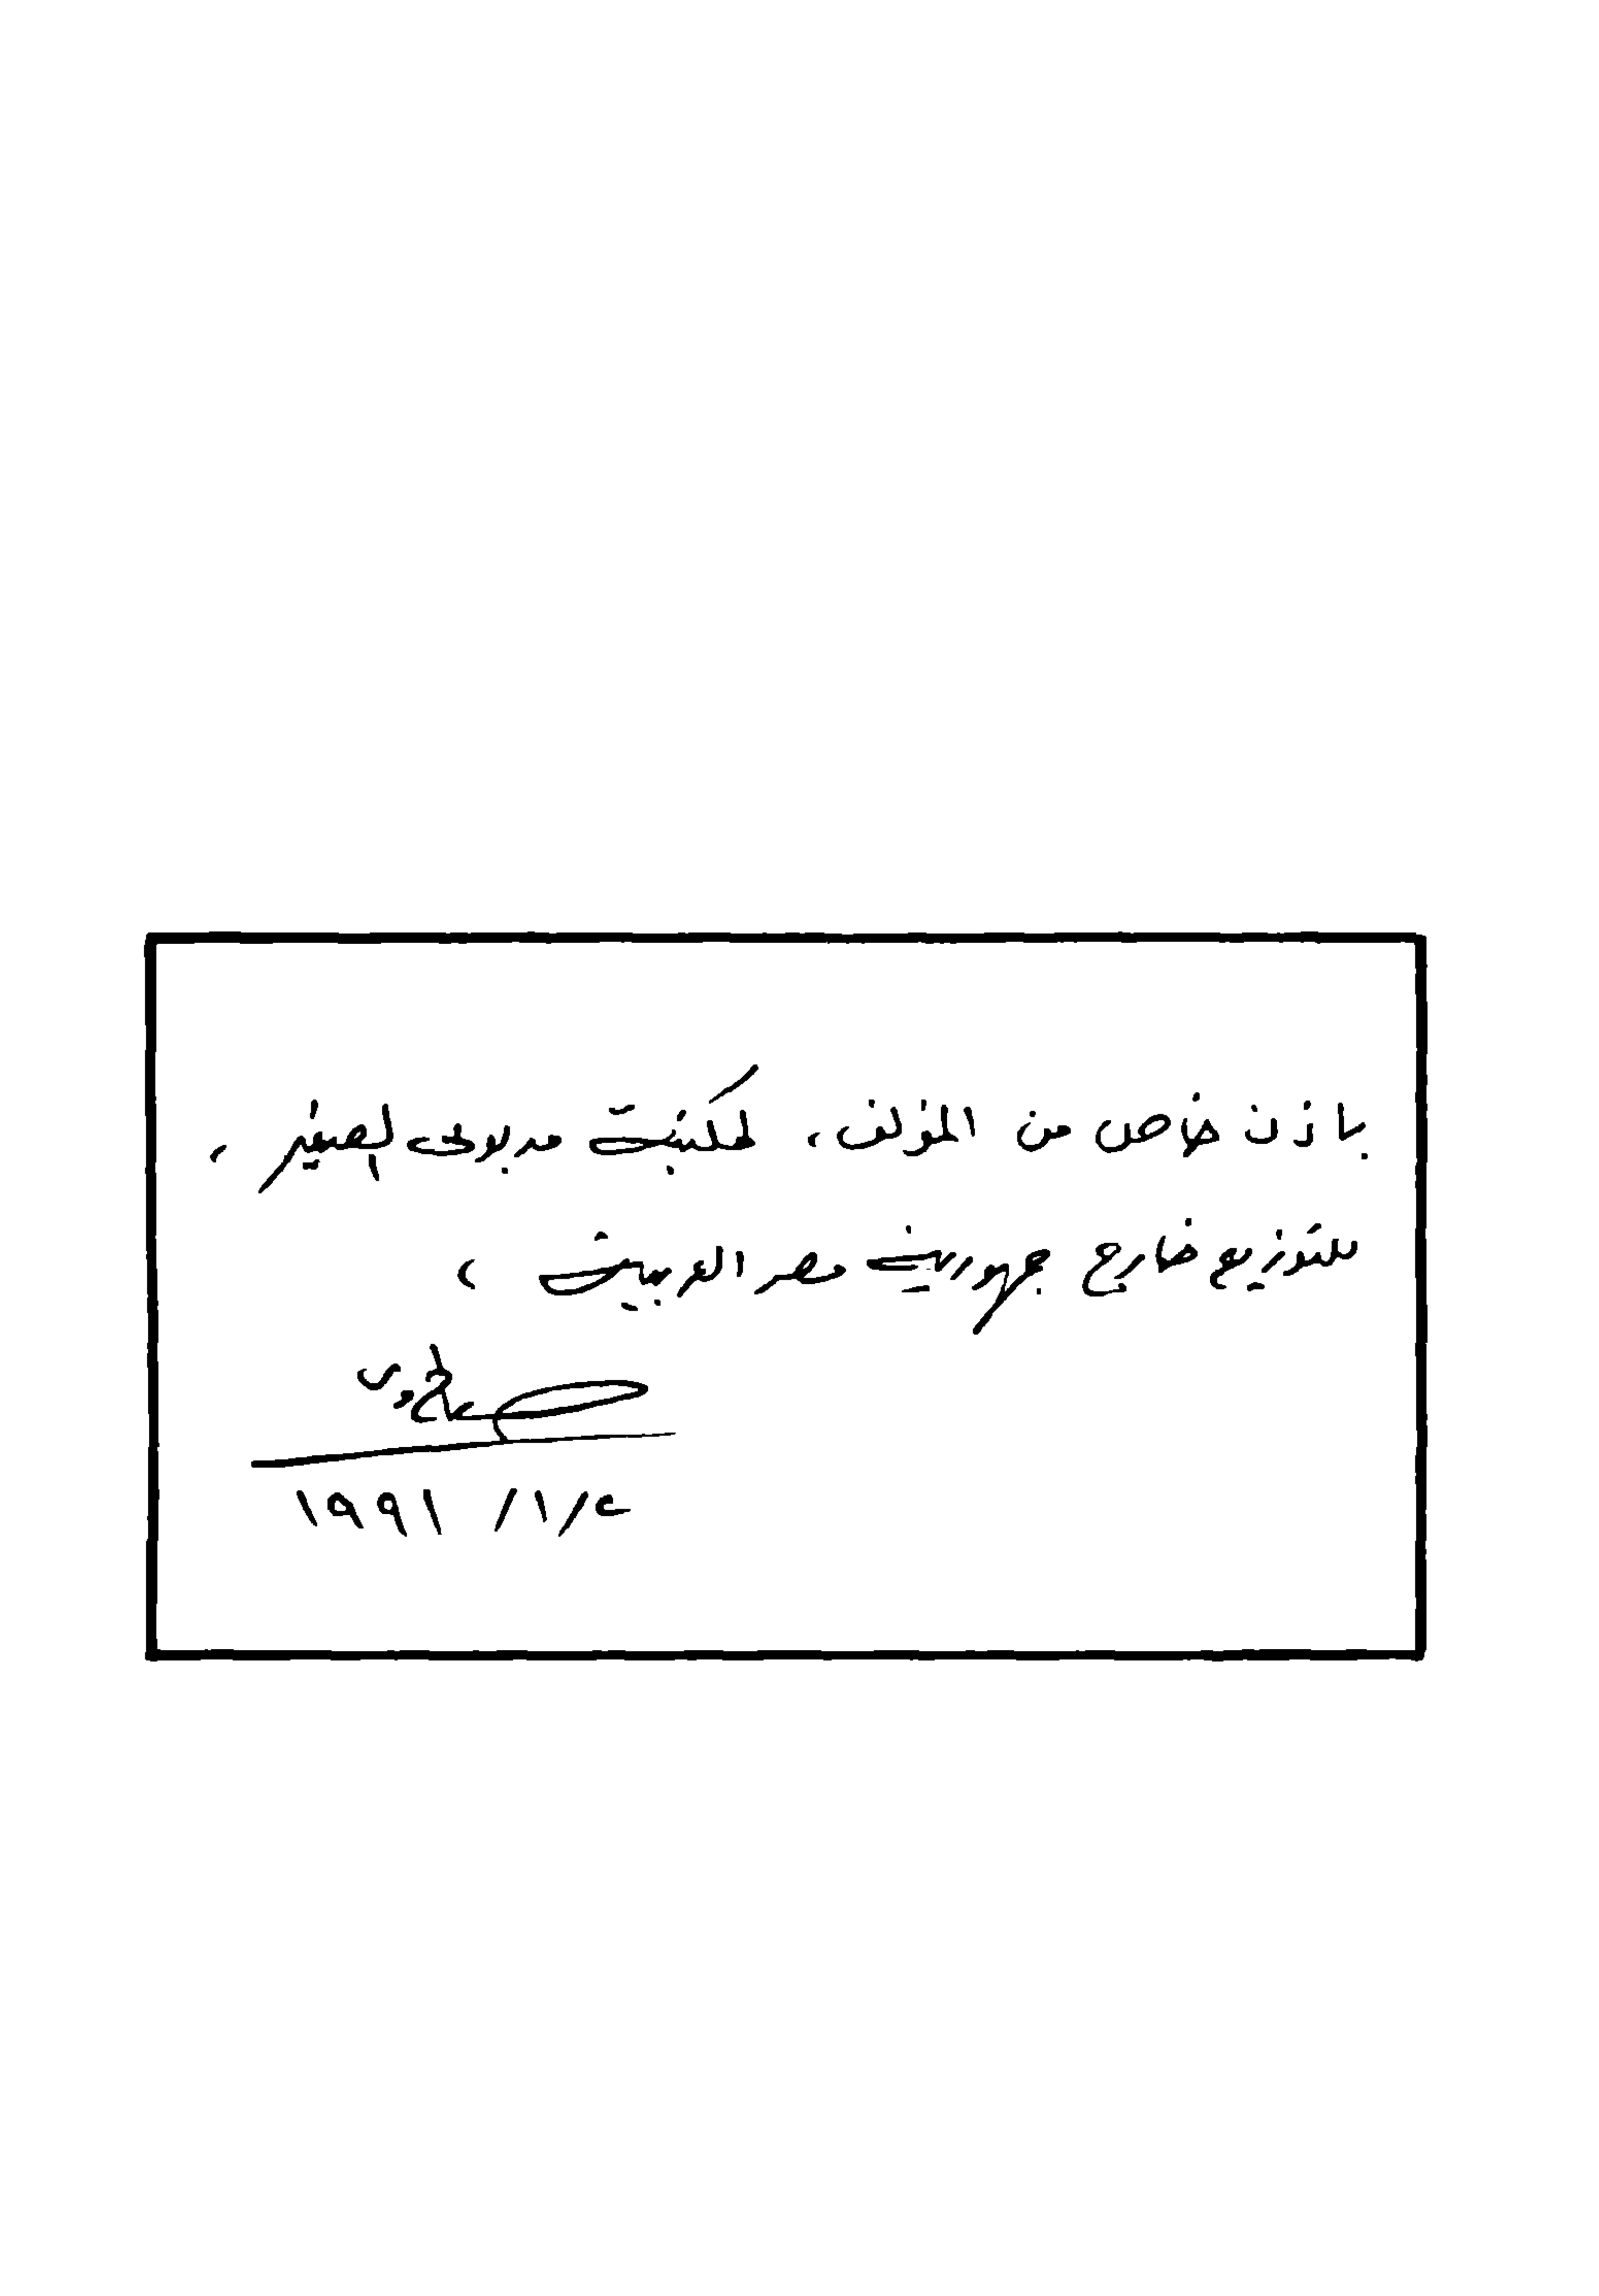 بإذن خاص من المؤلف، لمكتبة مدبولى الصغير،
للتوزيع خارج جمهورية مصر العربية،
١٩٩١ / ١ / ٤